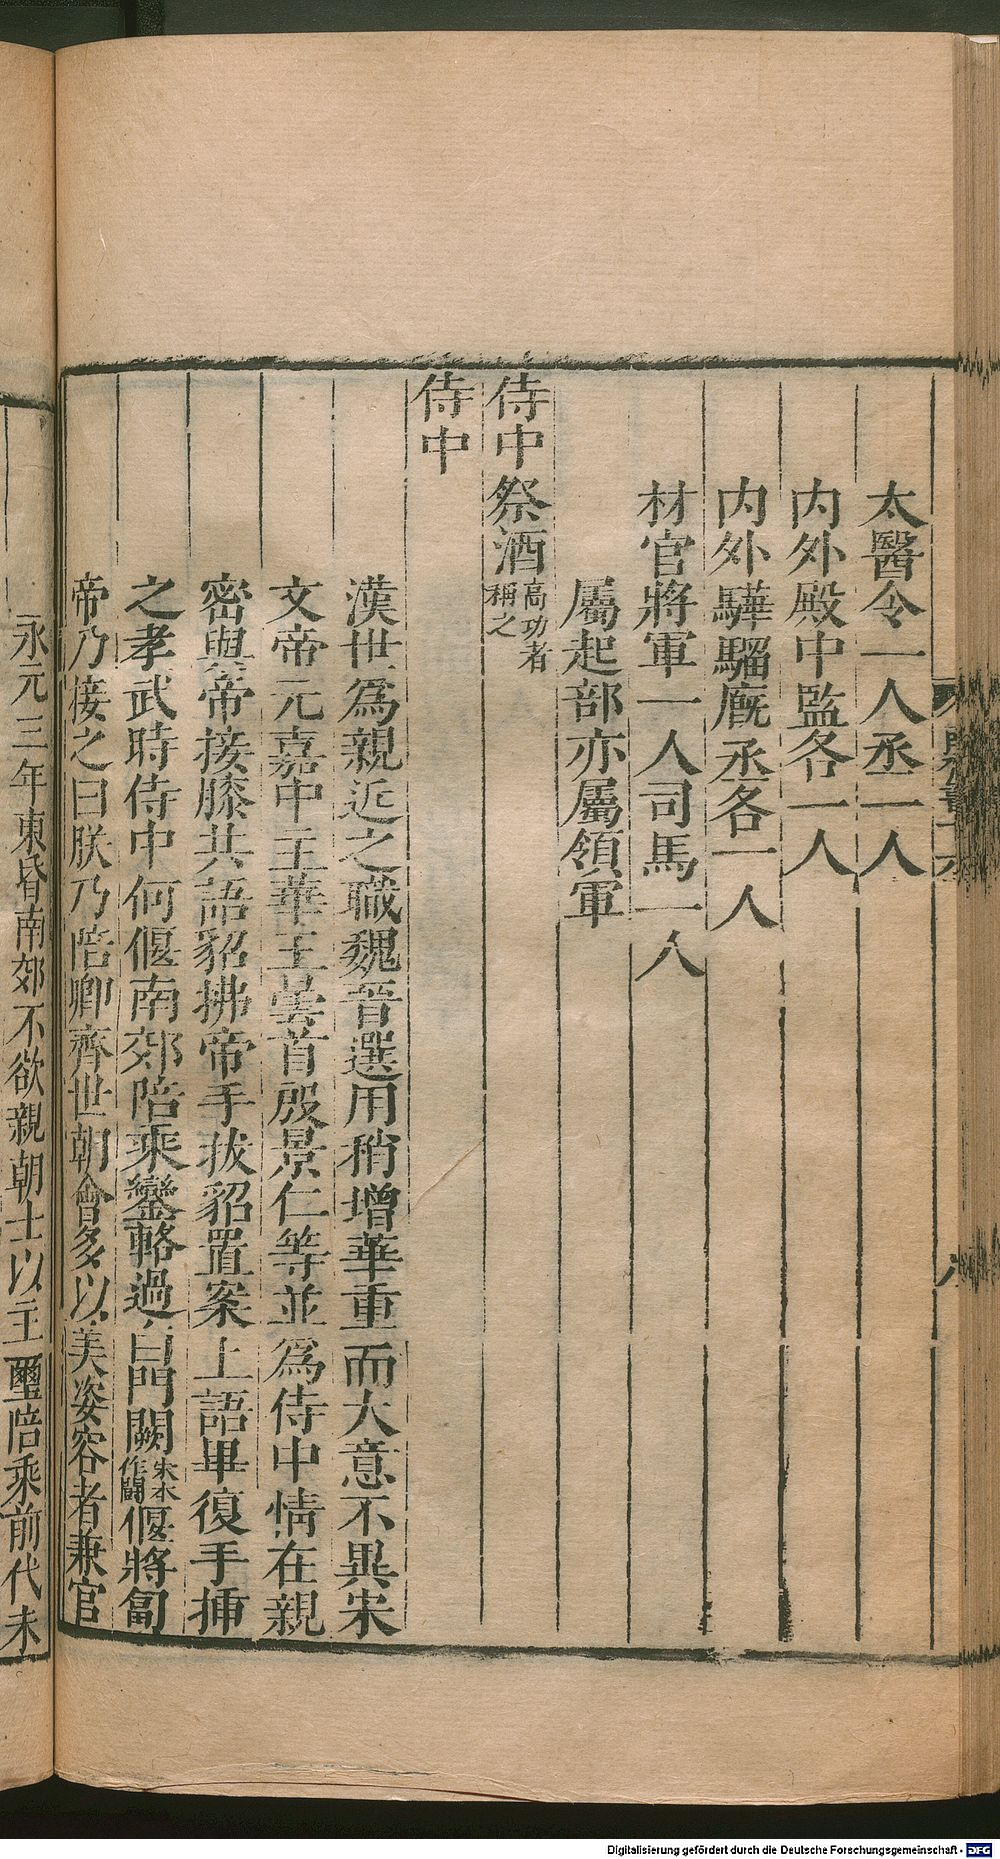 太醫令一人丞一人
內外殿中監各一人
內外驊騮廐丞各一人
材官將軍一人司馬一人
屬起部亦屬領軍
侍中祭酒高功者稱之
侍中
漢世爲親近之職魏晉選用稍增華重而大意不異宋
文帝元嘉中王華王曇首殷景仁等並爲侍中情在親
密與帝接膝共語貂拂帝手拔貂置案上語畢復手插
之孝武時侍中何偃南郊陪乘鑾輅過白門闕宋本作闒偃將匐
帝乃接之曰朕乃陪卿齊世朝會多以美姿容者兼官
永元三年東昏南郊不欲親朝士以主璽陪乘前代未
Digitalisierung gefördert durch die Deutsche Forschungsgemeinschaft - DFG